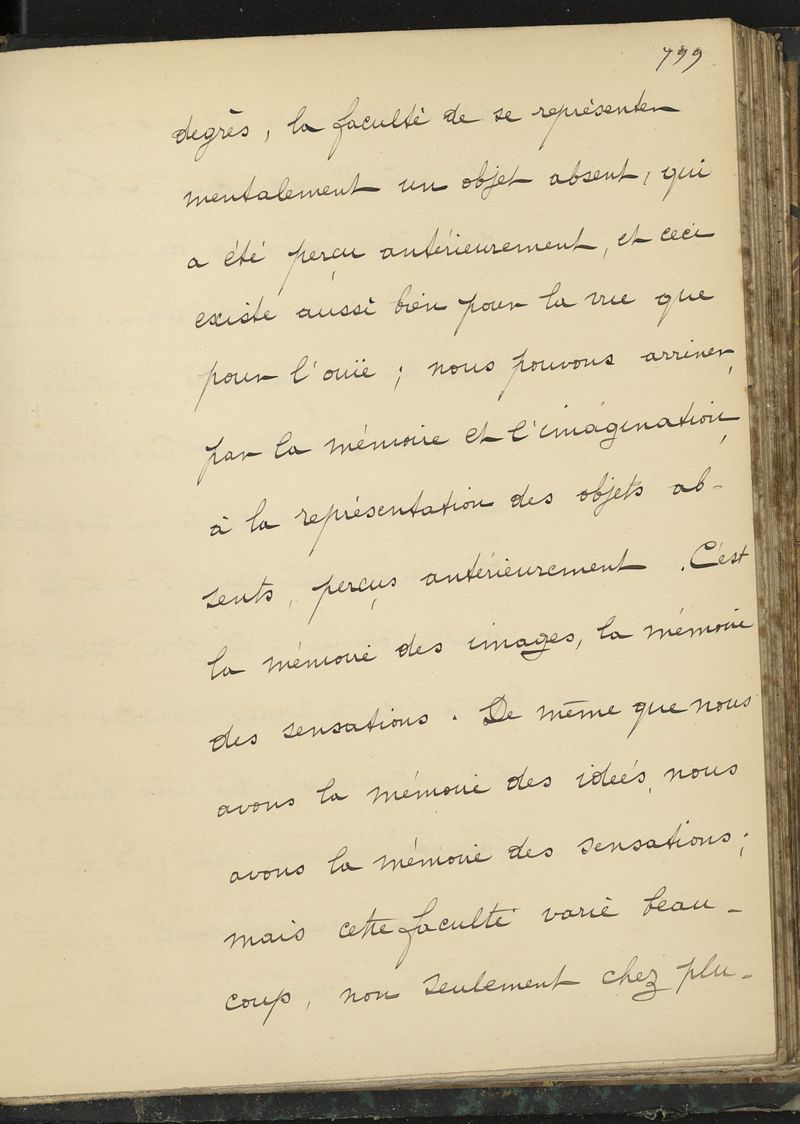 799
degrès, la faculté de se représenter
mentalement un objet absent, qui
a été perçu antérieurement, et ceci
existe aussi bien pour la vue que
pour l'ouïe ; nous pouvons arriver,
par la mémoire et l'imagination,
à la représentation des objets ab-
sents, perçus antérieurement. C'est
la mémoire des images, la mémoire
des sensations. De même que nous
avons la mémoire des idées, nous
avons la mémoire des sensations ;
mais cette faculté varie beau-
coup, non seulement chez plu-